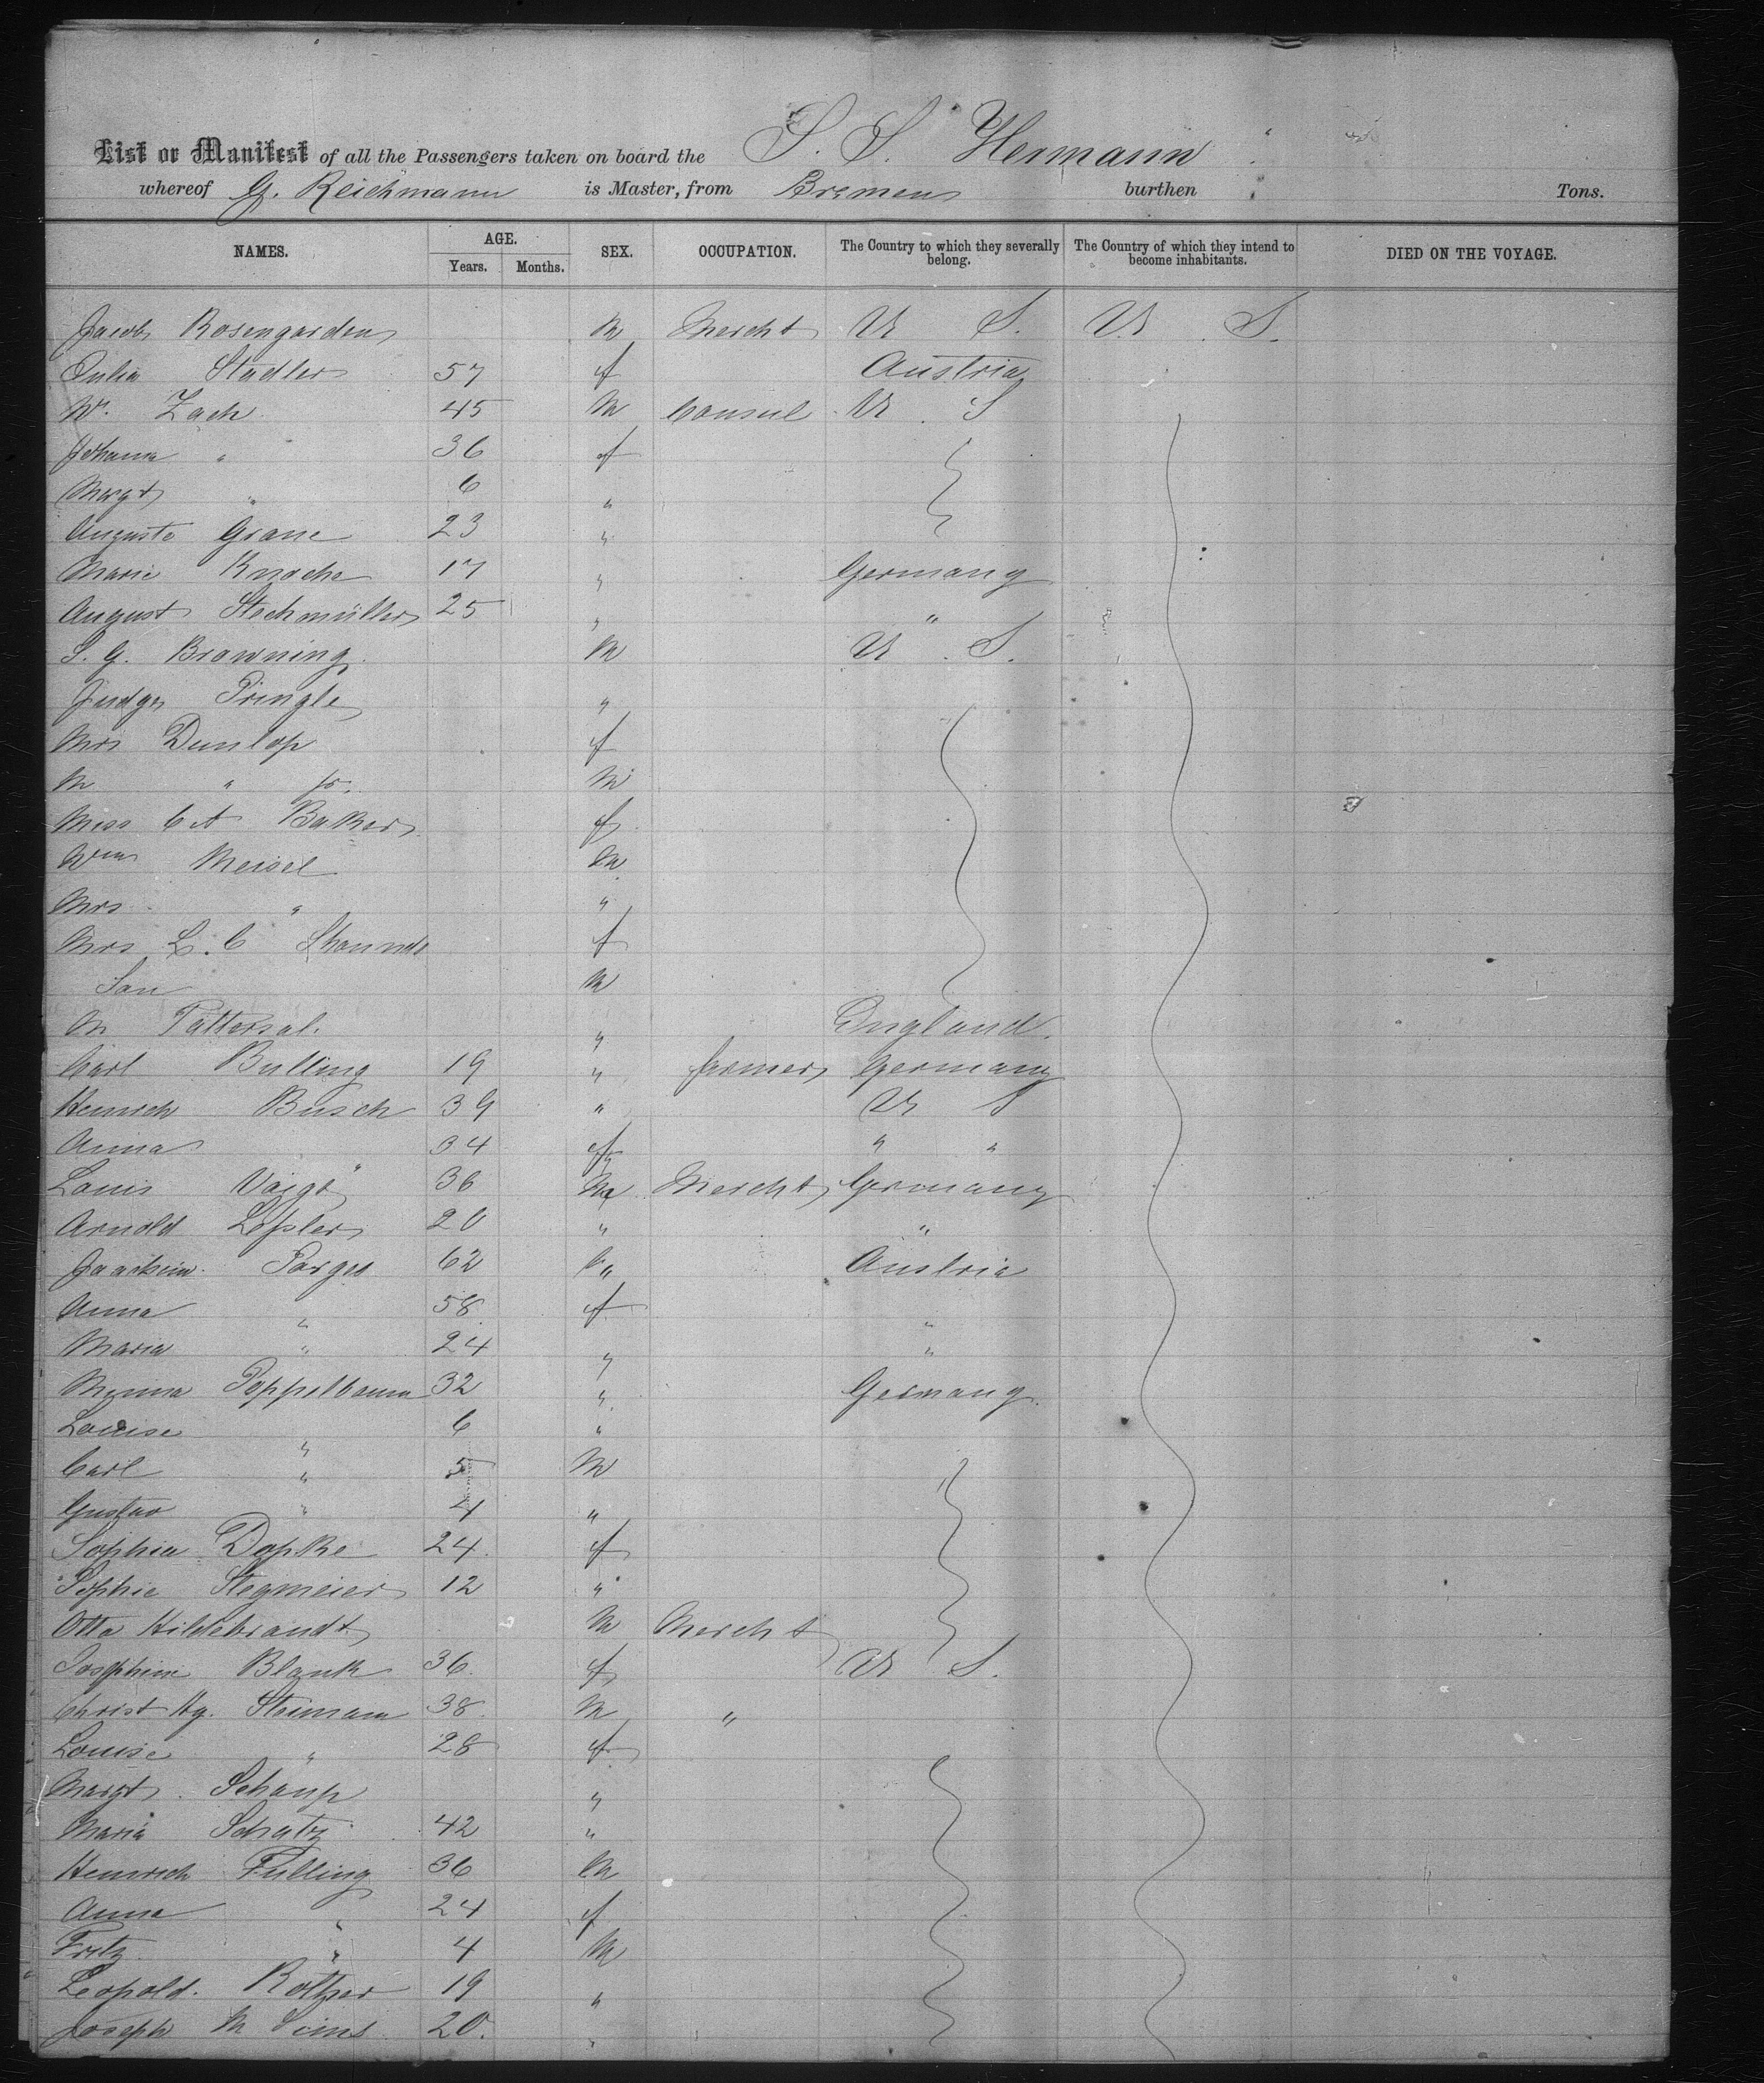 S. S. Hermann
List or Manifest of all the Passengers taken on board the
whereof G. Reichmann is Master, from Bremen burthen Tons.
NAMES. AGE. SEX. OCCUPATION. The Country to which they severally belong. The Country of which they intend to become inhabitants. DIED ON THE VOYAGE.
Years. Months.
Jacob Rosengarden m Mercht U S. U. S.
Stadler 57 f Austria
Wm. Zach 45 m Consul U. S
Johanna " 36 f
Margt " 6 "
Auguste Grane 23 "
Marie Knoche 17 " Germany
August Steckmüller 25 " "
S. G. Browning m U. S.
Judge Pringle "
Mrs Dunlop f
M " Jr. m
Miss C A Baker f
Wm Meisel m
Mrs " "
Mrs L. C f
Son m
M Pattersal. " England.
Carl Bulling 19 " farmer Germany
Heinrich Busch 39 " U S
Anna " 34 f " "
Louis Voigt 36 m Mercht Germany
Arnold Lessler 20 " "
Joachim Porges 62 " Austria
Anna " 58 f "
Maria " 24 " "
Minna Poppelbaum 32 " Germany.
Louise " 6 "
Carl " 5 m
Gustav " 4 "
Sophia Dopke 24. f
Sophie Stegmeier 12 "
Otto Hildebrandt m Mercht
Josephine Blank 36. f U S.
Christ Hy. Steimann 38. m "
Louise " 28 f
Margt. Schaup "
Maria Schatz 42 "
Heinrich Fulling 36 m
Anna " 24 f
Fritz " 4 m
Leopold. Rother 19 "
Joseph M Sims 20. "